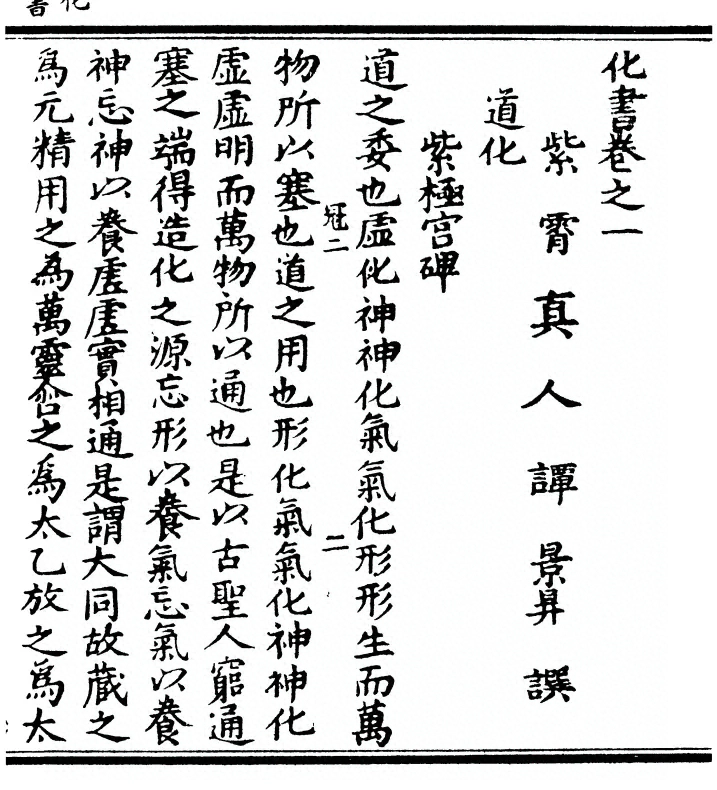 化書卷之一
紫霄真人譚景昇譔
道化
紫極宮碑
道之委也虛化神神化氣氣化形形生而萬
冠二
二
物所以塞也道之用也形化氣氣化神神化
虛虛明而萬物所以通也是以古聖人窮通
塞之端得造化之源忘形以養氣忘氣以養
神忘神以養虛虛實相通是謂大同故藏之
為元精用之為萬靈含之為太乙放之為太